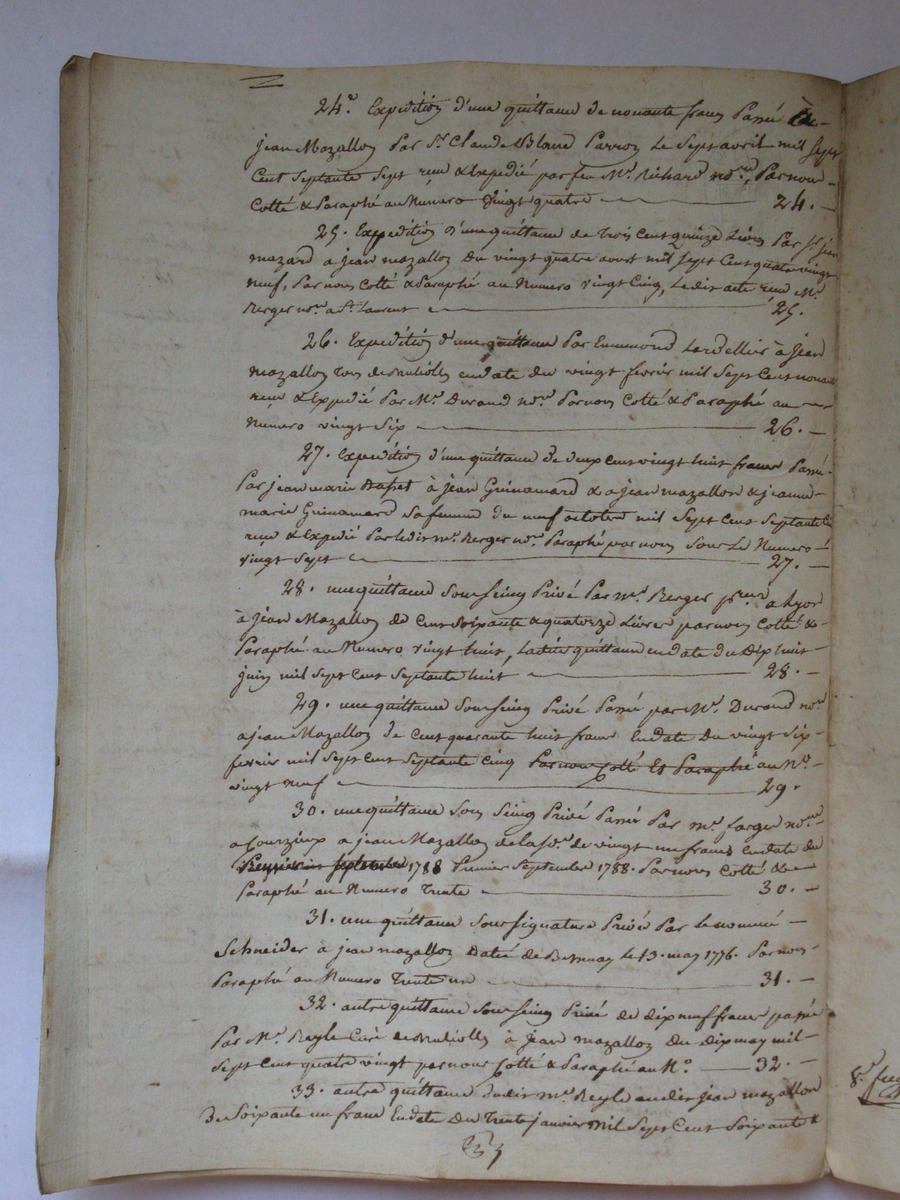 24°. Expedition d'une quittance de nonante francs Passé à
jean Mazallon Par Sr. Claude Blanc Parroz Le Sept avril mil Sept
Cent Septante Sept reçu & Expedié par feu Me. Richard nore., Par nous
Cotté & Paraphé au Numero vingt quatre 24.
25. Expedition d'une quittance de Trois Cent quinze Livres Par Sr. jean
mazard a jean mazallon du vingt quatre avril mil Sept Cent quatre vingt
neuf, Par nous Cotté & Paraphé au Numero vingt Cinq, Le dit acte reçu Me.
Berger nore. a St. Laurent 25.
26. Expedition d'une quittance Par Ennemond Lardellier à Jean
Mazallon en date du vingt fevrier mil Sept Cent nonante
reçu & Expedié Par Me. Durand nore. Par nous Cotté & Paraphé au
Numero vingt Six 26.
27. Expedition d'une quittance de deux cent vingt huit francs Passé
Par jean marie à jean Guinamard & a jean mazallon & jeanne
marie Guinamard Sa femme du neuf octobre mil Sept Cent Septante
reçu & Expedié Par Ledit Me. Berger nore. Paraphé par nous Sous Le Numero
vingt Sept 27.
28. une quittance Sous Seing Privé Par Me. Berger a Lyon
à Jean Mazallon de Cent Soixante & quatorze Livres par nous Cotté &
Paraphé au Numero vingt huit, Laditte quittance en date du Dix huit
juin mil Sept Cent Septante huit 28.
29. une quittance Sous Seing Privé Passé par Me. Durand nore.
a jean Mazallon de Cent quarante huit francs En date Du vingt Six
fevrier mil Sept Cent Septante Cinq Par nous Cotté Et Paraphé au No.
vingt neuf 29.
30. une quittance Sous Seing Privé Passé Par Me. farges nore.
a Courzieux a jean Mazallon de La So. de vingt un francs En date du
Premier Septembre 1788 Premier Septembre 1788. Par nous Cotté &
Paraphé au Numero Trente 30.
31. une quittance Sous Signature Privée Par le nommé
Schneider à jean mazallon Datée de Bessenay le 13. may 1776. Par nous
Paraphé au Numero Trente un 31.
32. autre quittance Sous Seing Privé de dix neuf francs passée
Par Me. Reyle Curé à jean mazallon du dix may mil
Sept Cent quatre vingt par nous Cotté & Paraphé au No. 32.
33. autre quittance dudit Me. Reyle audit jean mazallon
De Soixante un francs En date Du Trente janvier Mil Sept Cent Soixante &